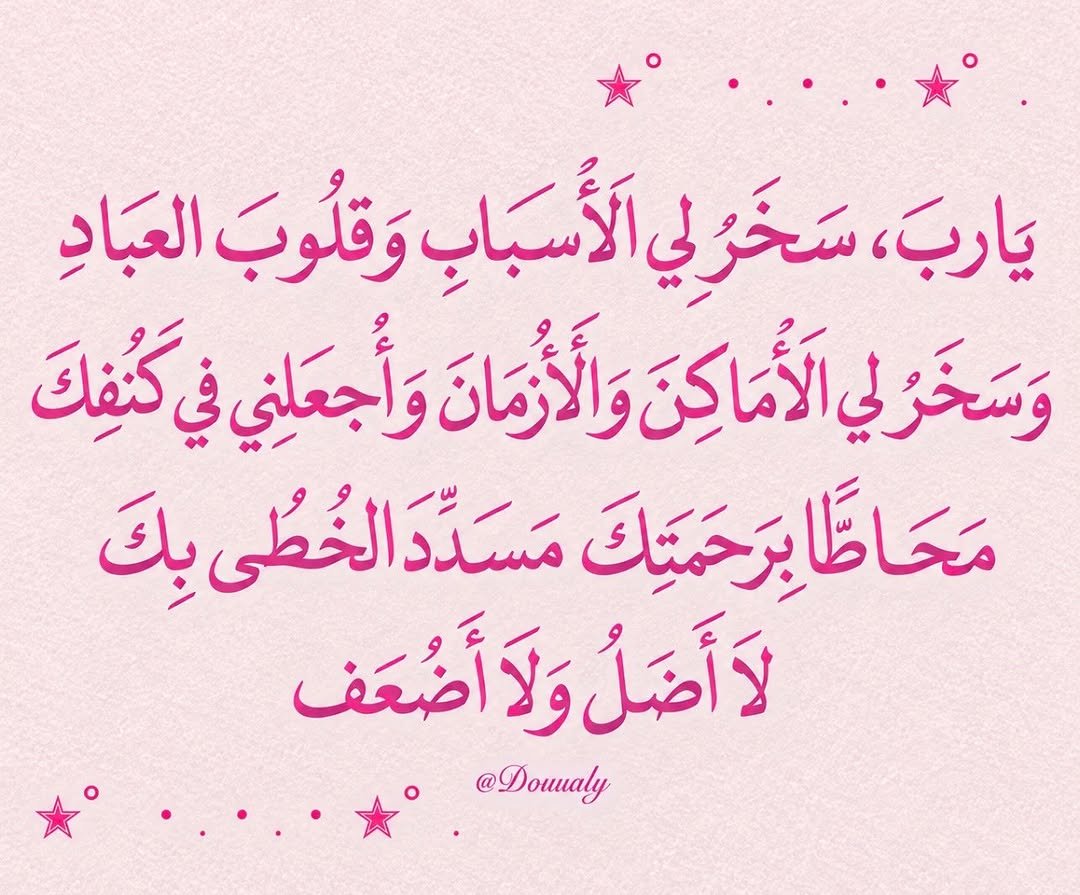 يَاربَ، سَخَرُ لِي الَأُسبَابِ وَقلُوبَ العبَادِ
وَسَخَرُ لي الَأُمَاكِنَ وَالَأُزمَانَ وَأُجعَلِني في كَنُفِكَ
مَحَاطًّا بِرَحمَتِكَ مَسَدِّدَ الخُطُى بِكَ
لاَ أَضَلُ وَلاَ أَضُعَف
@Douualy